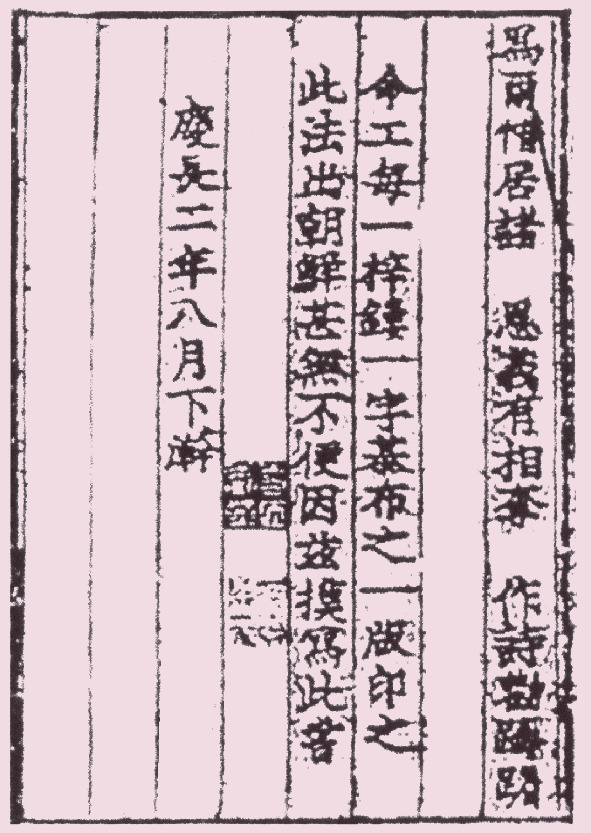 爲爾惜居諸　恩義有相奪　作詩勸躊躇
命工毎一梓鏤一字棊布之一版印之
此法出朝鮮甚無不便因茲摸寫此書
慶長二年八月下澣